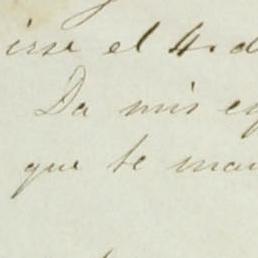 irse el 4. d
Da mis ex
que te man